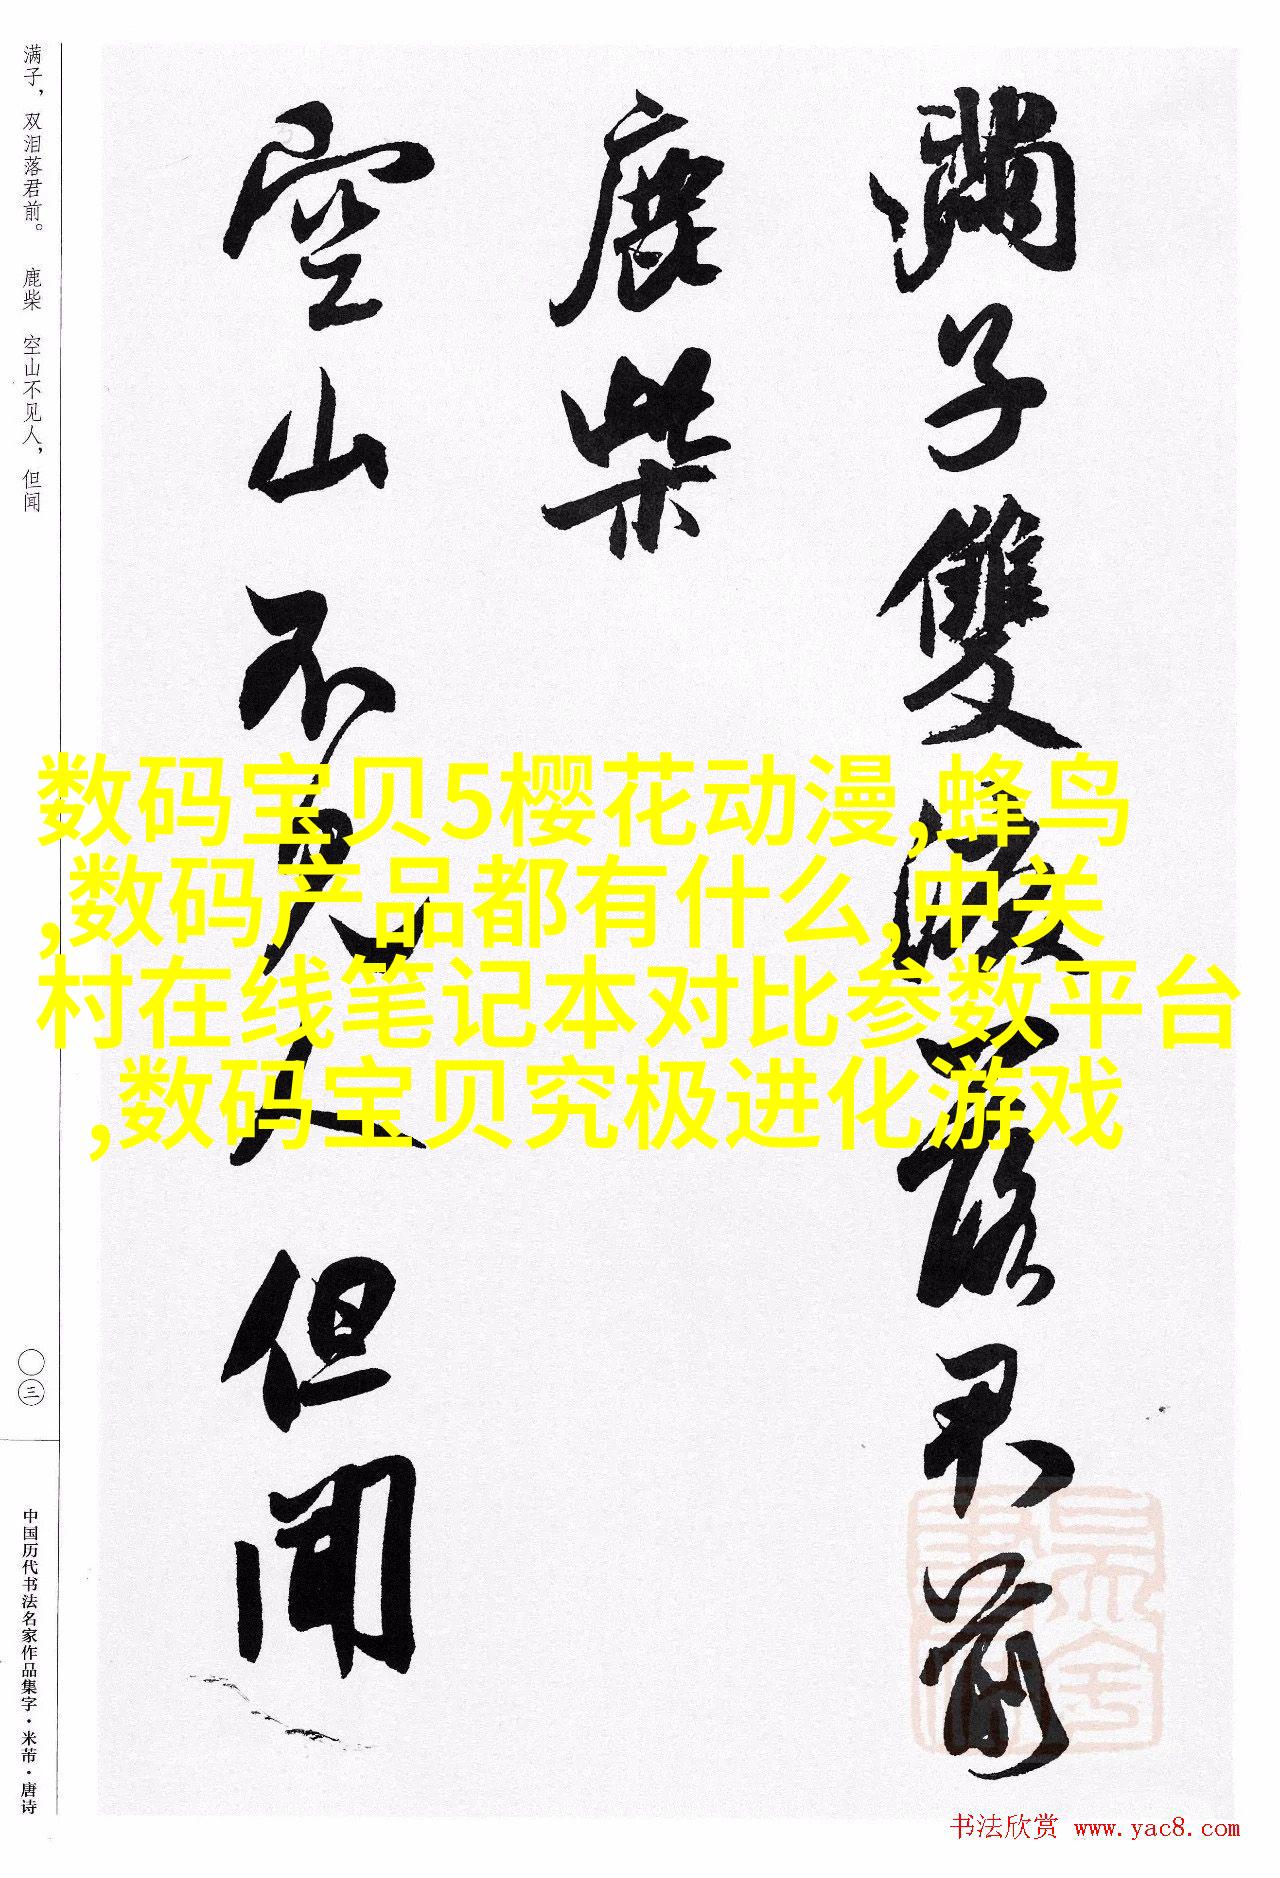 滿子雙淚落君前
鹿柴
空山不見人但聞
满子，双泪落君前。 鹿柴 空山不见人，但闻
〇三
中国历代书法名家作品集字·米芾·唐诗
数码宝贝5樱花动漫,蜂鸟
,数码产品都有什么,中关
村在线笔记本对比参数平台
,数码宝贝究极进化游戏
书法欣赏 www.yac8.com